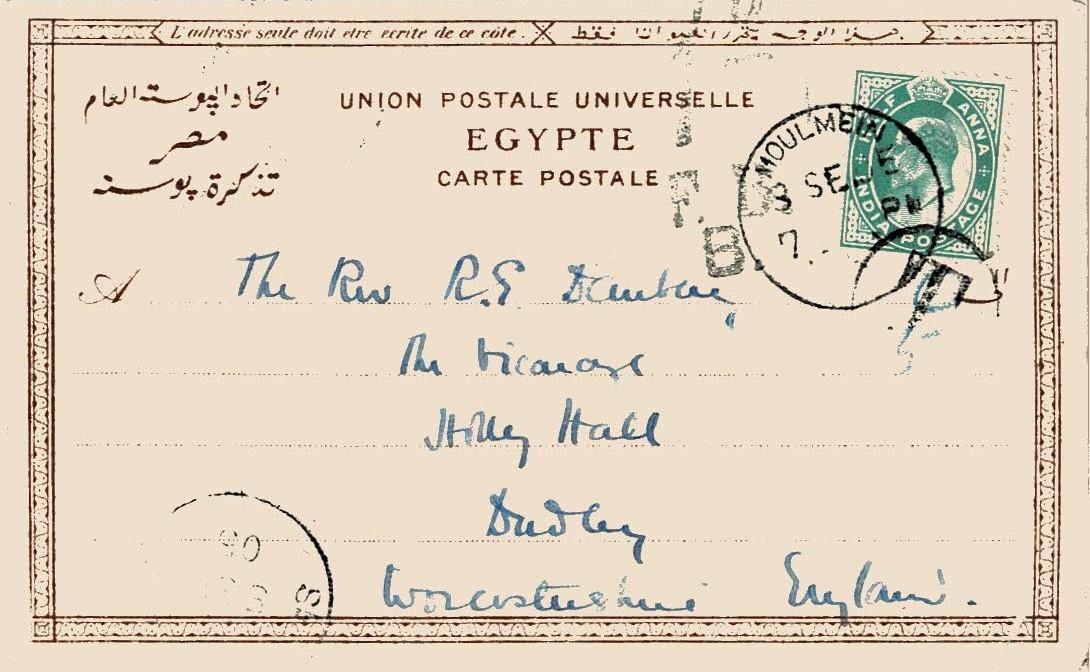 L'adresse seule doit être écrite de ce côté.
هذا الوجه يحرر العنوان فقط
اتحاد البوستة العام
مصر
تذكرة بوستة
UNION POSTALE UNIVERSELLE
EGYPTE
CARTE POSTALE
HALF ANNA
INDIA POSTAGE
MOULMEIN
3 SE
5
PM
7
B.
T
A
The Rev R.E
The Vicarage
Holly Hall
Dudley
Worcestershire England.